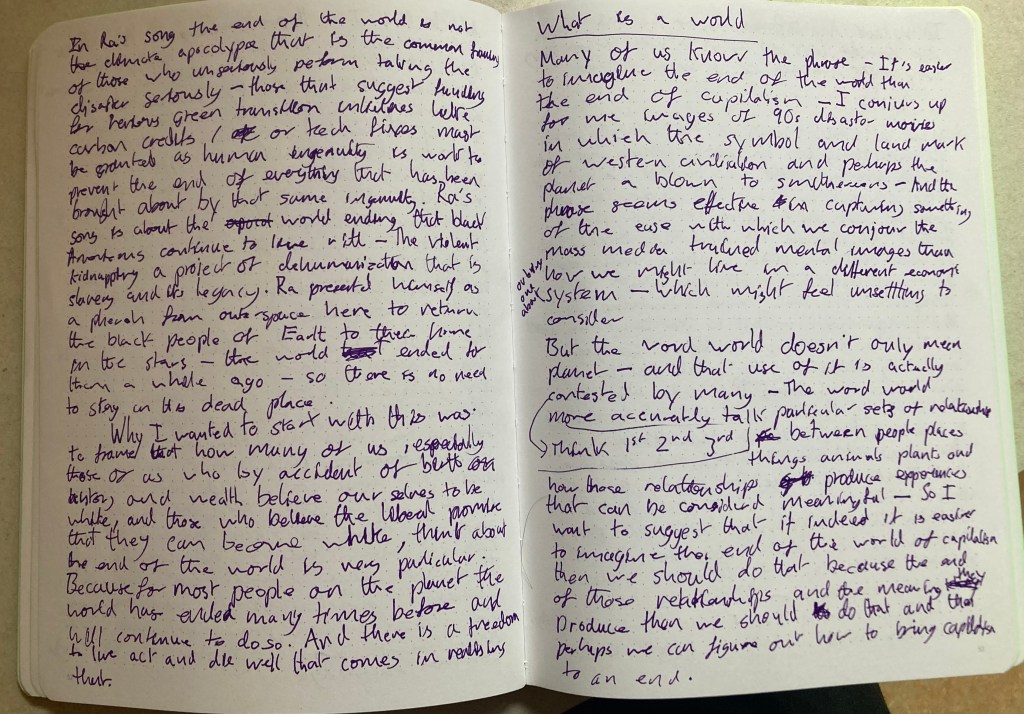 In Ra's song the end of the world is not
the climate apocolypse that is the common framing
of those who unseriously perform taking the
disaster seriously – those that suggest funding
for heinous green transition initiatives like
carbon credits / or tech fixes must
be granted as human ingenuity is work to
prevent the end of everything that has been
brought about by that same ingenuity. Ra's
song is about the world ending that black
Americans continue to live with – The violent
kidnapping a project of dehumanization that is
slavery and its legacy. Ra presented himself as
a pharoh from outerspace here to return
the black people of Earth to their home
in the stars – the world ended for
them a while ago – so there is no need
to stay in this dead place.
Why I wanted to start with this was
to frame how many of us, especially
those of us who by accident of birth
history and wealth believe ourselves to be
white, and those who believe the liberal promise
that they can become white, think about
the end of the world is very particular.
Because for most people on the planet the
world has ended many times before and
will continue to do so. And there is a freedom
to live act and die well that comes in realising
that.
What is a world
Many of us know the phrase – It is easier
to imagine the end of the world than
the end of capitalism – I conjurs up
for me images of 90s disaster movies
in which the symbol and land mark
of western civilisation and perhaps the
planet a blown to smithereens – And the
phrase seems effective in capturing something
of the ease with which we conjour the
mass media trained mental images than
how we might live in a different economic
system – which might feel unsettling to
consider
But the word world doesn't only mean
planet – and that use of it is actually
contested by many – The word world
more accurately talk particular sets of relationships
→ Think 1st 2nd 3rd
between people places
things animals plants and
how those relationships produce experiences
that can be considered meaningful – So I
want to suggest that if indeed it is easier
to imagine the end of the world of capitalism
then we should do that because the end
of those relationships and the meaning they
produce than we should do that and
perhaps we can figure out how to bring capitalism
to an end.